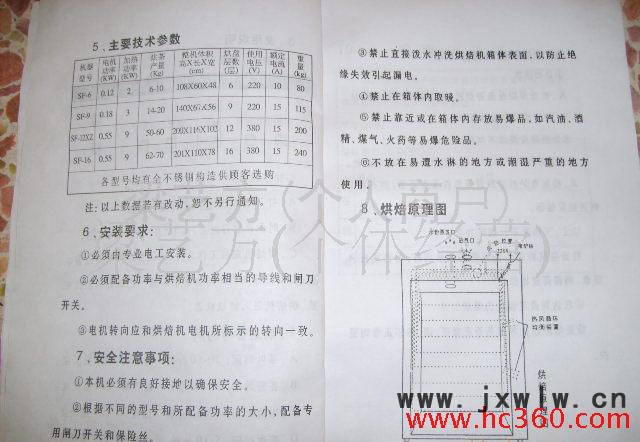 5、主要技术参数
机器型号 电机功率(KW) 加热功率(KW) 盐茶产量(Kg) 整机体积高X长X宽(cm) 烘盘层数(层) 使用电压(V) 额定电流(A) 重量(kg)
SF-6 0.12 2 6-10 108X60X48 6 220 10 80
SF-9 0.18 3 14-20 140X67X56 9 220 15 115
SF-12XZ 0.55 9 50-60 200X116X102 12 380 15 200
SF-16 0.55 9 62-70 201X110X78 16 380 15 240
各型号均有全不锈钢构造供顾客选购
注：以上数据若有改动，恕不另行通知。
6、安装要求：
①必须由专业电工安装。
②必须配备功率与烘焙机功率相当的导线和闸刀
开关。
③电机转向应和烘焙机电机所标示的转向一致。
7、安全注意事项：
①本机必须有良好接地以确保安全。
②根据不同的型号和所配备功率的大小，配备专
用闸刀开关和保险丝。
③禁止直接泼水冲洗烘焙机箱体表面，以防止绝
缘失效引起漏电。
④禁止在箱体内取暖。
⑤禁止靠近或在箱体内存放易爆品，如汽油、酒
精、煤气、火药等易爆危险品。
⑥不放在易遭水淋的地方或潮湿严重的地方
使用。
8、烘焙原理图
进气口
热风循环
均衡装置
(个人商户)
(个体经营)
www.jxwlw.cn
www.hc360.com